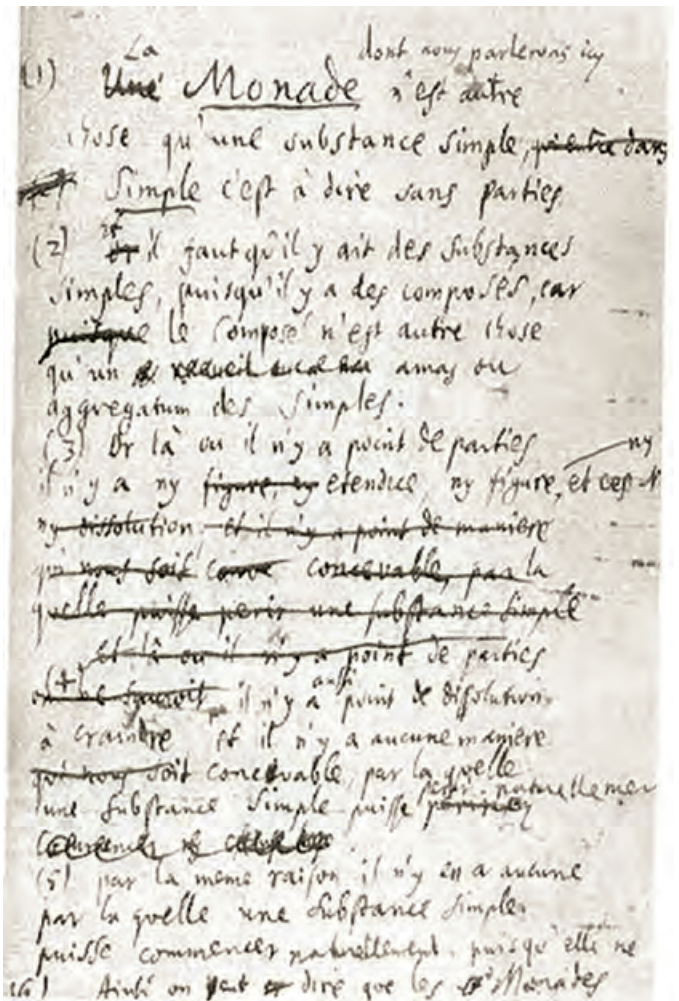 La dont nous parlerons icy
(1) Une Monade n'est autre
chose qu'une substance simple, qui entre dans
Simple c'est à dire sans parties
(2) Or il faut qu'il y ait des substances
simples, puisqu'il y a des composés, car
puisque le Composé n'est autre chose
qu'un recueil amas ou
aggregatum des simples.
(3) Or là ou il n'y a point de parties ny
il n'y a ny figure, ny etendue, ny figure, et ces
ny dissolution et il n'y a point de maniere
qui nous soit concevable, par la
quelle puisse perir une substance simple
et là ou il n'y a point de parties
(4) il n'y a aussi point de dissolution
à craindre et il n'y a aucune maniere
qui nous soit concevable, par la quelle
une substance simple puisse perir naturellement
(5) par la meme raison il n'y en a aucune
par la quelle une substance simple
puisse commencer naturellement, puisqu'elle ne
(6) Ainsi on peut dire que les Monades